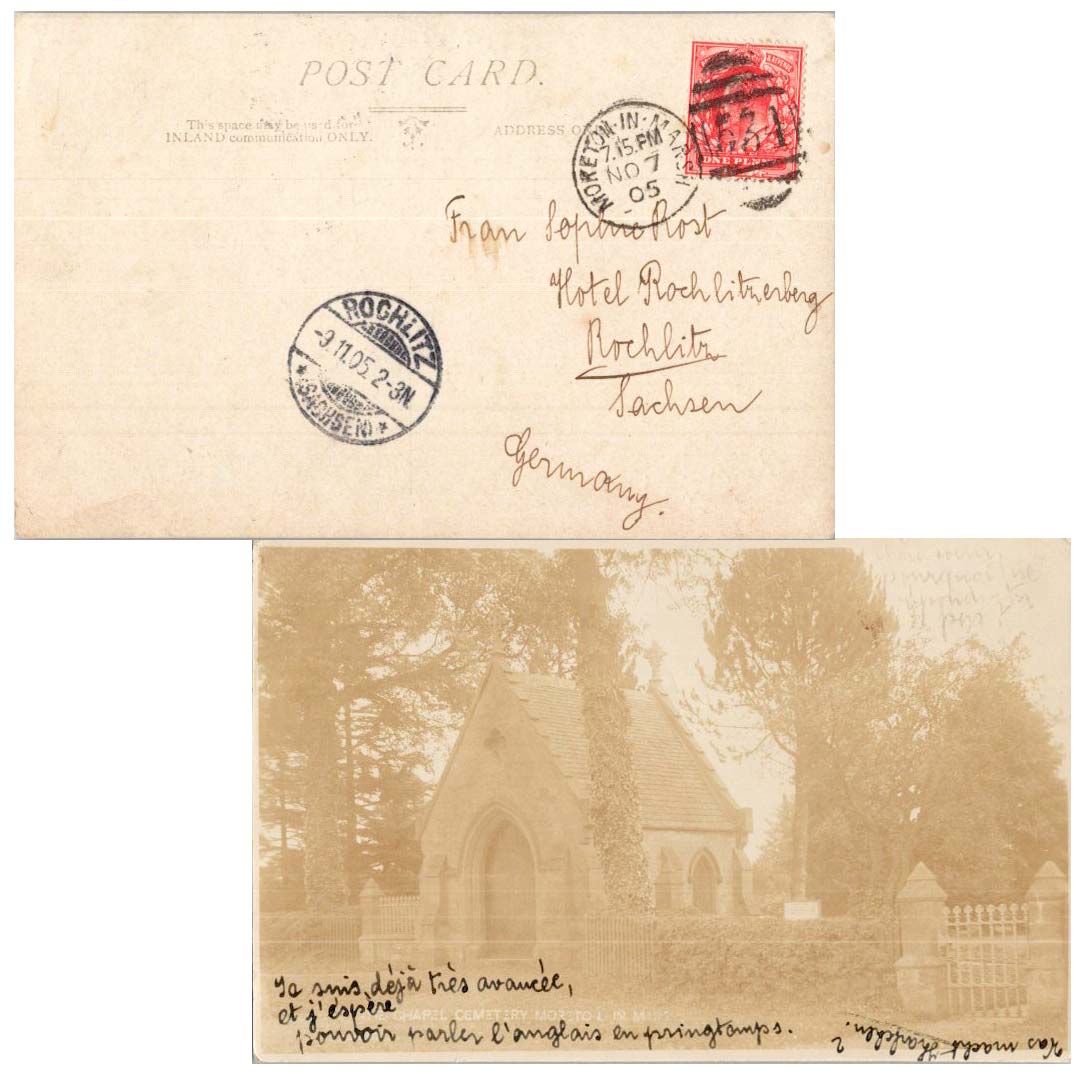 POST CARD.
This space may be used for
INLAND communication ONLY.
ADDRESS
MORETON-IN-MARSH
7.15.PM
NO 7
05
ONE PENNY
Frau Sophie Rost
Hotel Rochlitzerberg
Rochlitz
Sachsen
Germany.
ROCHLITZ
-9.11.05.2-3N.
* (SACHSEN) *
Je suis déjà très avancée,
et j'éspère
CHAPEL CEMETERY MORETON IN MARSH
pouvoir parler l'anglais en pringtamps.
Was macht ?